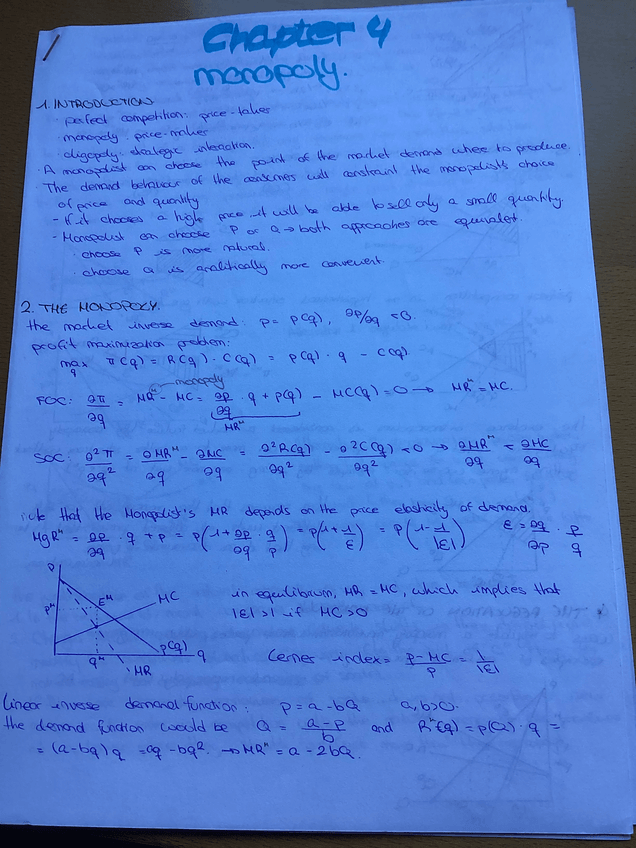 Chapter 4
monopoly.
1. INTRODUCTION
· perfect competition: price-takes
· monopoly: price-maker
· oligopoly: strategic interaction.
· A monopolist can choose the point of the market demand where to produce.
The demand behaviour of the consumers will constraint the monopolist's choice
of price and quantity
- If it chooses a high price, it will be able to sell only a small quantity.
- Monopolist can choose P or Q → both approaches are equivalent.
· choose P is more natural.
· choose Q is analitically more convenient.
2. THE MONOPOLY.
the market inverse demand: p = p(q), ∂p/∂q < 0.
profit maximization problem:
max_q π(q) = R(q) - C(q) = p(q) · q - C(q)
monopoly
FOC: ∂π/∂q = MR^M - MC = ∂p/∂q · q + p(q) - MC(q) = 0 → MR^M = MC.
MR^M
SOC: ∂²π/∂q² = ∂MR^M/∂q - ∂MC/∂q = ∂²R(q)/∂q² - ∂²C(q)/∂q² < 0 → ∂MR^M/∂q < ∂MC/∂q
note that the Monopolist's MR depends on the price elasticity of demand.
MgR^M = ∂p/∂q · q + p = p(1 + ∂p/∂q · q/p) = p(1 + 1/ε) = p(1 - 1/|ε|) ε = ∂q/∂p · p/q
P
MC
E^M
P^M
p(q)
q
q^M
MR
in equilibrium, MR = MC, which implies that
|ε| > 1 if MC > 0
Lerner index = p-MC/p = 1/|ε|
linear inverse demand function: p = a - bQ a, b > 0.
the demand function would be Q = a-p/b and R^M(q) = p(Q) · q =
= (a-bq)q = aq - bq². → MR^M = a - 2bQ.